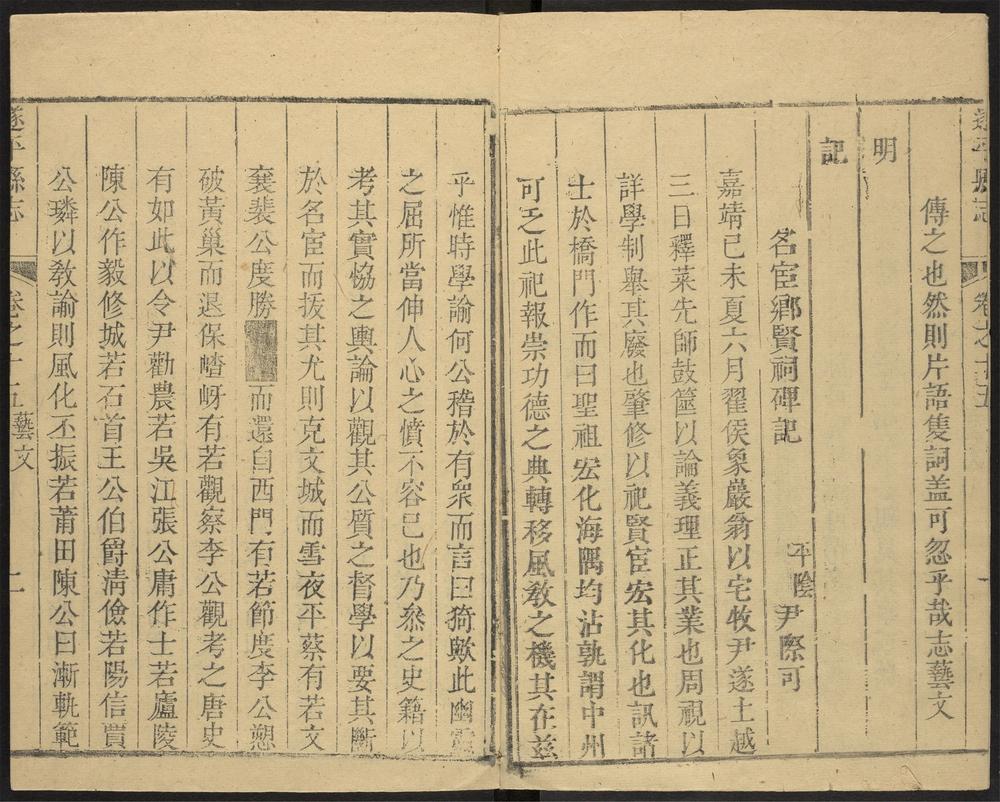 遂平縣志
卷之十五
一
傳之也然則片語隻詞盖可忽乎哉志藝文
明
記
名宦鄉賢祠碑記
平陰尹際可
嘉靖己未夏六月翟侯象巖翁以宅牧尹遂土越
三日釋菜先師鼓篋以論義理正其業也周視以
詳學制舉其廢也肇修以祀賢宦宏其化也訊諸
士於橋門作而曰聖祖宏化海隅均沾孰謂中州
可乏此祀報崇功德之典轉移風敎之機其在兹
乎惟時學諭何公稽於有衆而言曰猗歟此幽
之屈所當伸人心之憤不容已也乃叅之史籍以
考其實恊之輿論以觀其公質之督學以要其斷
於名宦而拔其尤則克文城而雪夜平蔡有若文
襄裴公度勝
而還自西門有若節度李公愬
破黃巢而退保嵖岈有若觀察李公觀考之唐史
有如此以令尹勸農若吳江張公庸作士若廬陵
陳公作毅修城若石首王公伯爵清儉若陽信賈
公璘以敎諭則風化丕振若莆田陳公曰漸軌範
遂平縣志
卷之十五
藝文
二